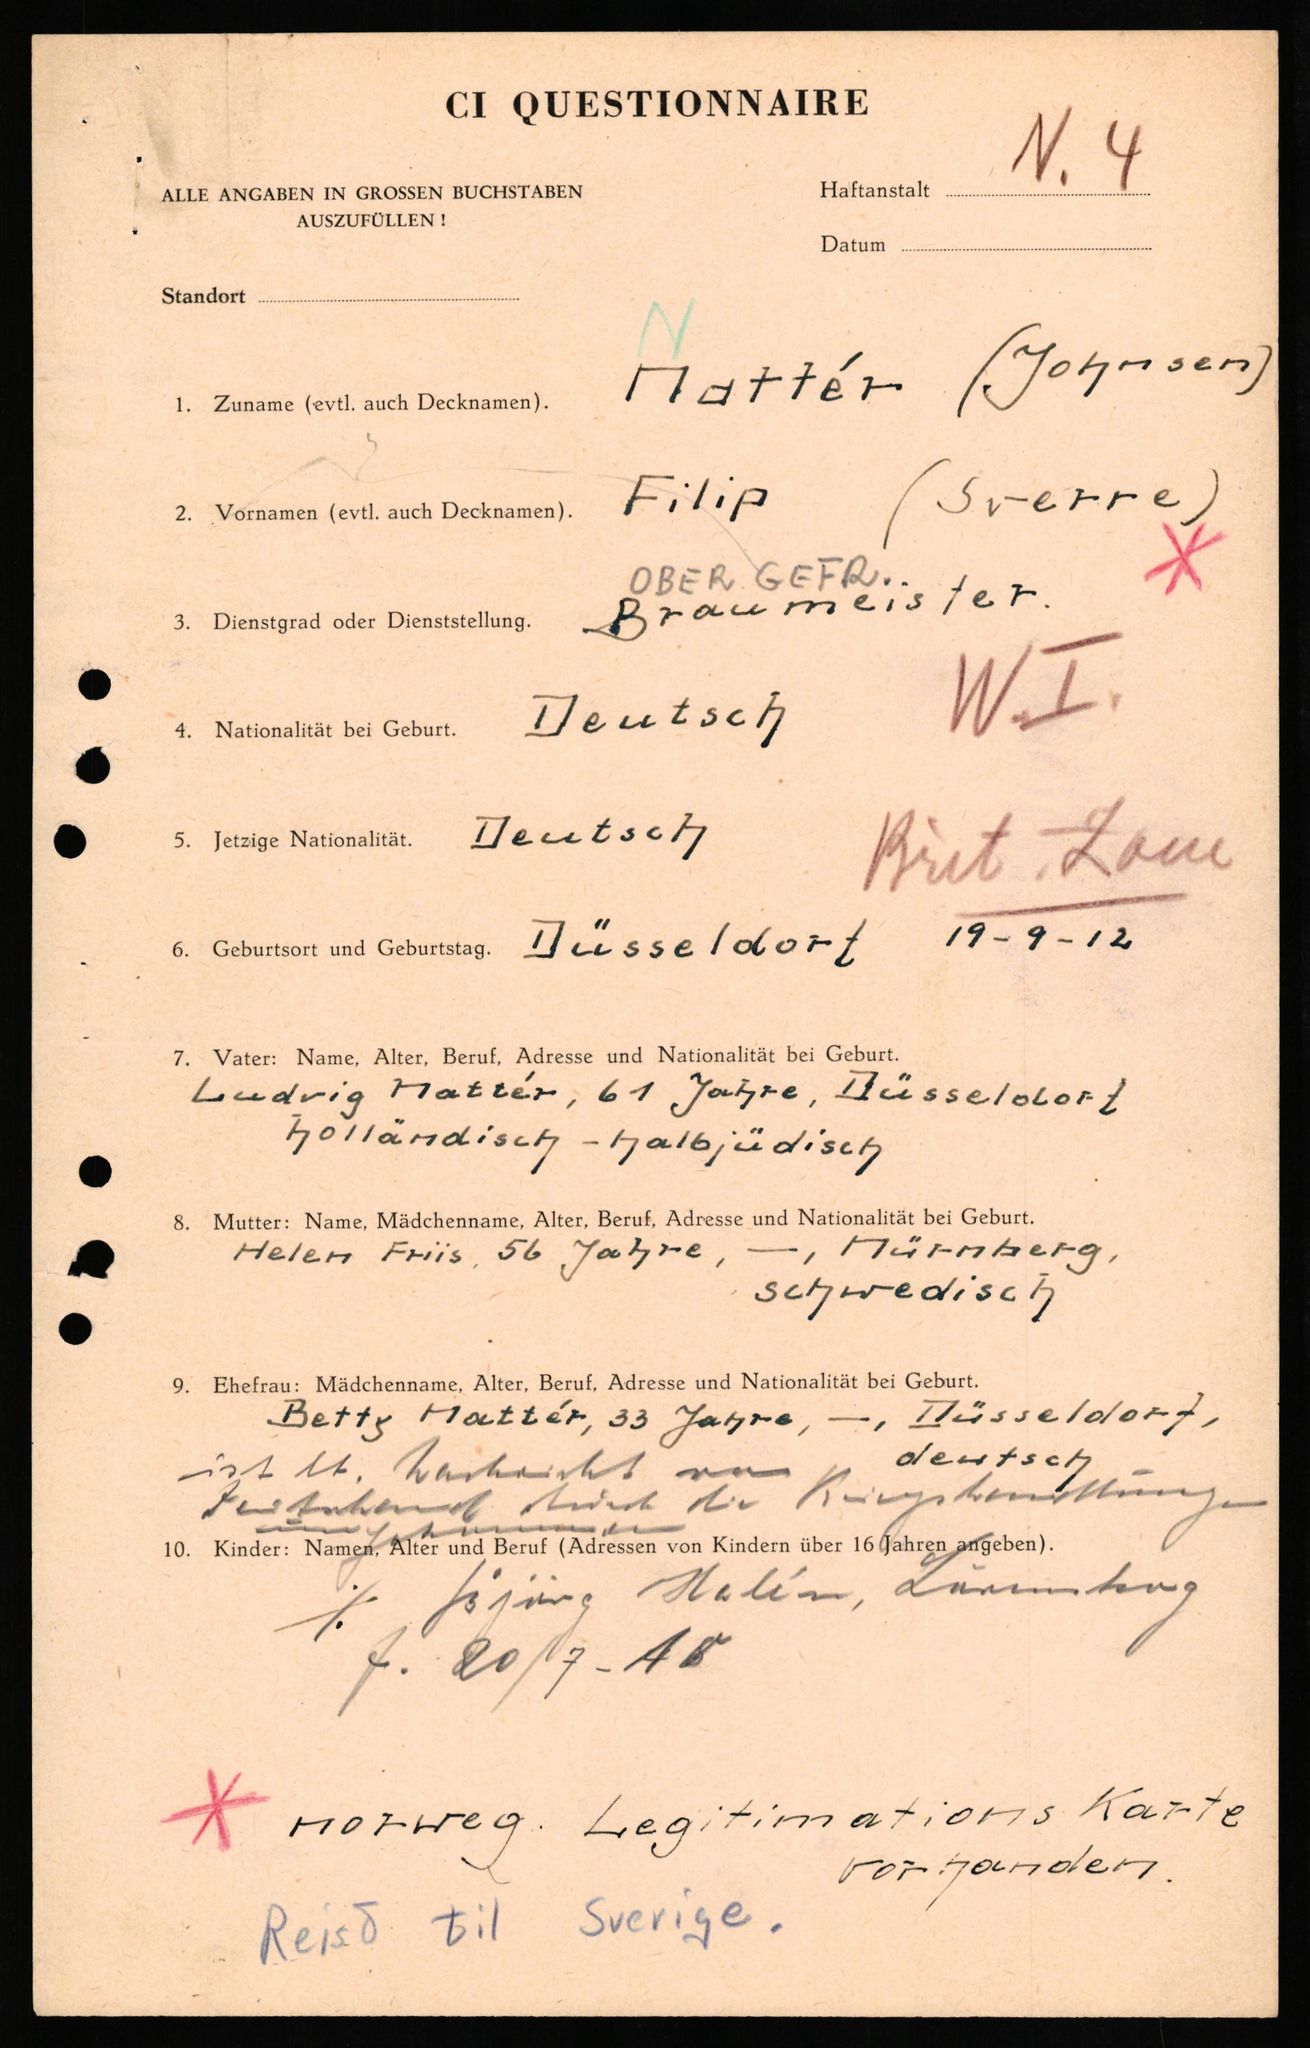 CI QUESTIONNAIRE
N. 4
ALLE ANGABEN IN GROSSEN BUCHSTABEN
AUSZUFÜLLEN!
Haftanstalt
Datum
Standort
N
1. Zuname (evtl. auch Decknamen). Mattér (Johnsen)
2. Vornamen (evtl. auch Decknamen). Filip (Sverre)
OBER GEFR.
3. Dienstgrad oder Dienststellung. Braumeister.
W.I.
4. Nationalität bei Geburt. Deutsch
5. Jetzige Nationalität. Deutsch
Brit. Zone
6. Geburtsort und Geburtstag. Düsseldorf 19-9-12
7. Vater: Name, Alter, Beruf, Adresse und Nationalität bei Geburt.
Ludvig Mattér, 61 Jahre, Düsseldorf
holländisch - halbjüdisch
8. Mutter: Name, Mädchenname, Alter, Beruf, Adresse und Nationalität bei Geburt.
Helen Friis, 56 Jahre, —, Nürnberg,
schwedisch
9. Ehefrau: Mädchenname, Alter, Beruf, Adresse und Nationalität bei Geburt.
Betty Mattér, 33 Jahre, —, Düsseldorf,
deutsch
ist lt. Nachricht von
durch die
10. Kinder: Namen, Alter und Beruf (Adressen von Kindern über 16 Jahren angeben).
f. 20/7-45
norweg. Legitimations Karte
vorhanden.
Reist til Sverige.